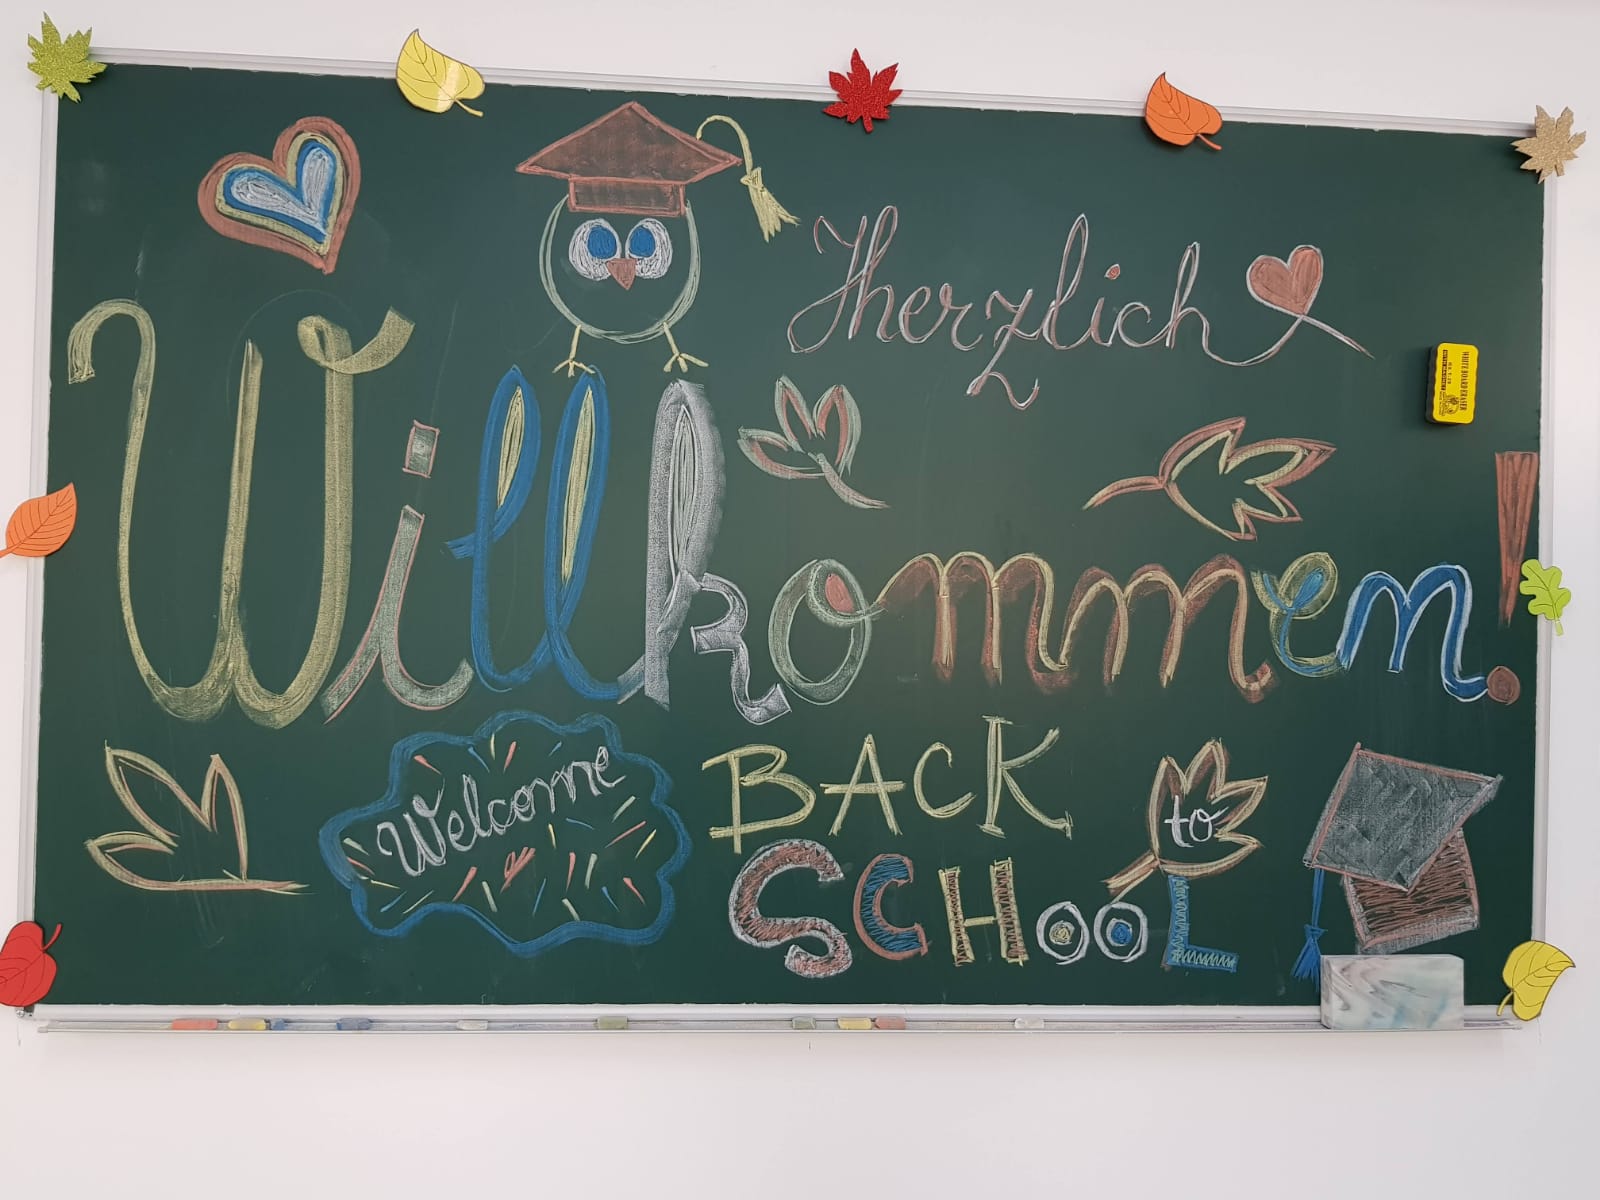 Herzlich
Willkommen!
Welcome
BACK
to
SCHOOL
WHITE BOARD ERASER